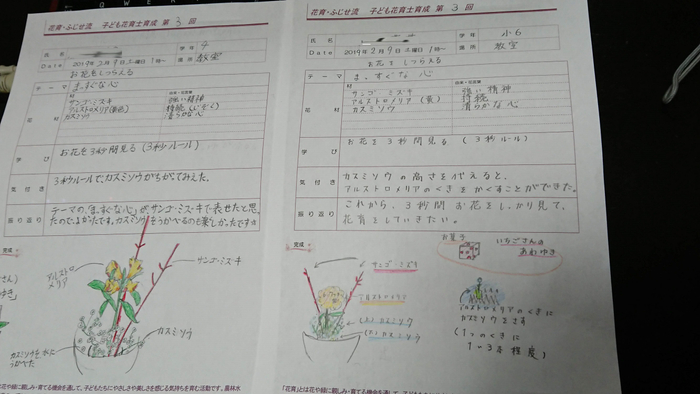 花育・ふじせ流 子ども花育士育成 第 3 回
氏 名
学 年 4
Date 2019年2月9日土曜日1時~
場 所 教室
お花をしつらえる
テーマ ま、すぐな心
花 材
サンゴ・ミズキ 強い精神
アルストロメリア(黄色) 持続(じぞく)
カスミソウ 清らかな心
学 び お花を3秒間見る(3秒ルール)
気付き 3秒ルールで、カスミソウがちがってみえた。
振り返り テーマの、「ま、すぐな心」が、サンゴ・ミズキで表せたと思
ったので、よかったです。カスミソウをうかべるのも楽しかったです
完成
アルストロ
メリア
サンゴ・ミズキ
カスミソウ
カスミソウを水に
うかべた
花育・ふじせ流 子ども花育士育成 第 3 回
氏 名
学 年 小6
Date 2019年2月9日土曜日1時~
場 所 教室
お花をしつらえる
テーマ ま、すぐな心
花 材
サンゴ ミズキ 強い精神
アルストロメリア(黄) 持続
カスミソウ 清らかな心
学 び お花を3秒間見る(3秒ルール)
気付き カスミソウの高さを代えると、
アルストロメリアのくきをかくすことができた。
振り返り これから、3秒間お花をしっかり見て、
花育をしていきたい。
完成
お菓子
いちごさんの
あわゆき
サンゴ・ミズキ
アルストロメリア
カスミソウ
カスミソウ
アルストロメリアのくきに
カスミソウをさす
(1つのくきに
1~3本程度)
は花や緑に親しみ・育てる機会を通して、子どもたちにやさしさや美しさを感じる気持ちを育む活動です。農林水
「花育」とは花や緑に親しみ・育てる機会を通して、子ど